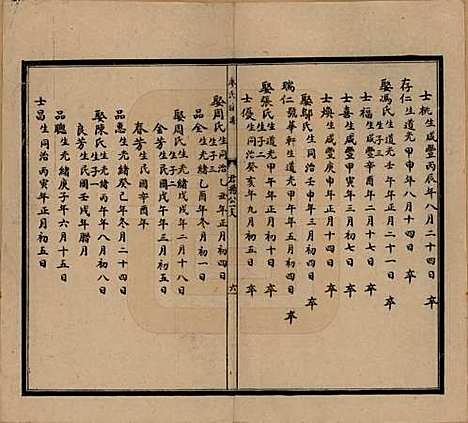 士桃生咸豐丙辰年八月二十四日
存仁生道光甲申年八月十四日 卒
娶馮氏生道光壬午年正月二十一日 卒
生子三
士福生咸豐辛酉年二月十七日 卒
士喜生咸豐甲寅年三月初七日 卒
士煥生咸豐甲子年正月初四日 卒
娶鄔氏生同治壬申年三月初十日 卒
瑞仁號華軒生道光甲午年五月初四日 卒
娶張氏生道光甲午年四月初四日 卒
生子二
士優生同治癸亥年九月初五日 卒
氏宗譜
六
娶周氏生同治乙丑年正月初四日
生子二
品金生光緒乙酉年冬月初一日
娶周氏生光緒戊戌年二月十八日
金芳生民國壬午年三月初五日
春芳生民國辛酉年
品惠生光緒癸巳年冬月二十四日
娶陳氏生光緒丁酉年八月初八日
生子一
良芳生民國壬戌年臘月
品聰生光緒庚子年六月十五日
士昌生同治丙寅年正月初五日